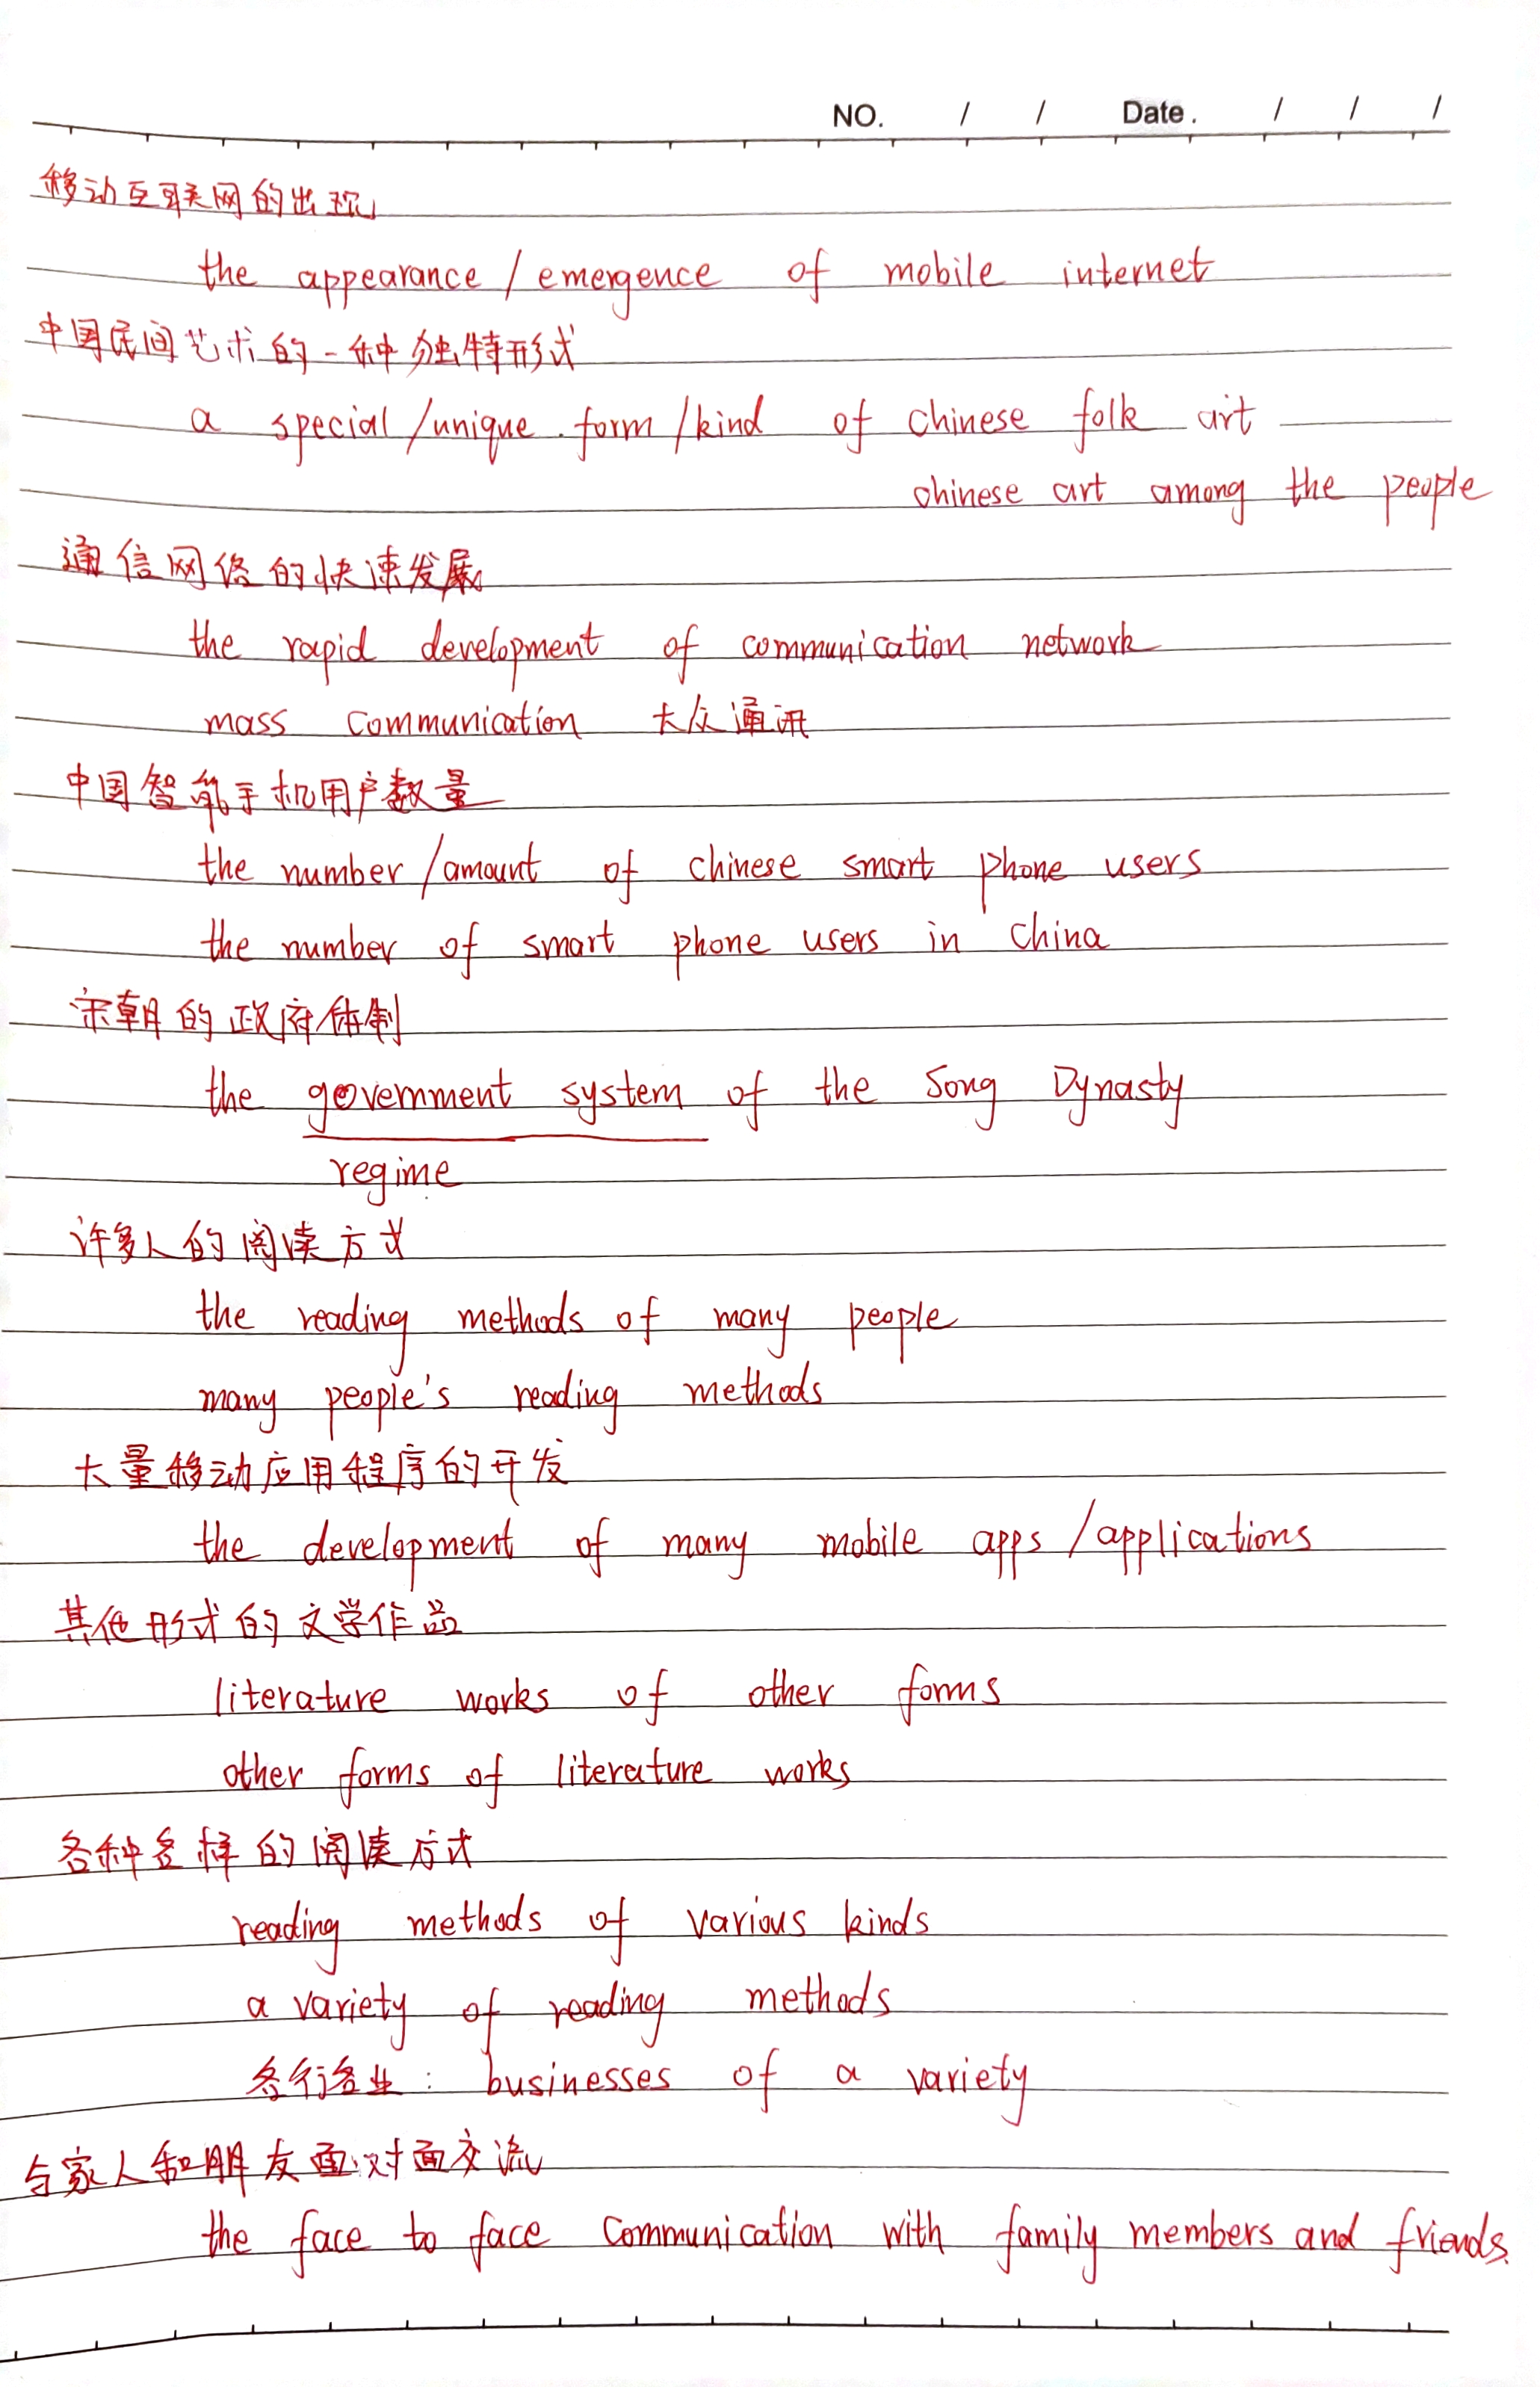 NO. / / Date. / / /
移动互联网的出现
the appearance / emergence of mobile internet
中国民间艺术的一种独特形式
a special / unique form / kind of chinese folk art
chinese art among the people
通信网络的快速发展
the rapid development of communication network
mass communication 大众通讯
中国智能手机用户数量
the number / amount of chinese smart phone users
the number of smart phone users in China
宋朝的政府体制
the government system of the Song Dynasty
regime
许多人的阅读方式
the reading methods of many people
many people's reading methods
大量移动应用程序的开发
the development of many mobile apps / applications
其他形式的文学作品
literature works of other forms
other forms of literature works
各种各样的阅读方式
reading methods of various kinds
a variety of reading methods
各行各业: businesses of a variety
与家人和朋友面对面交流
the face to face communication with family members and friends.